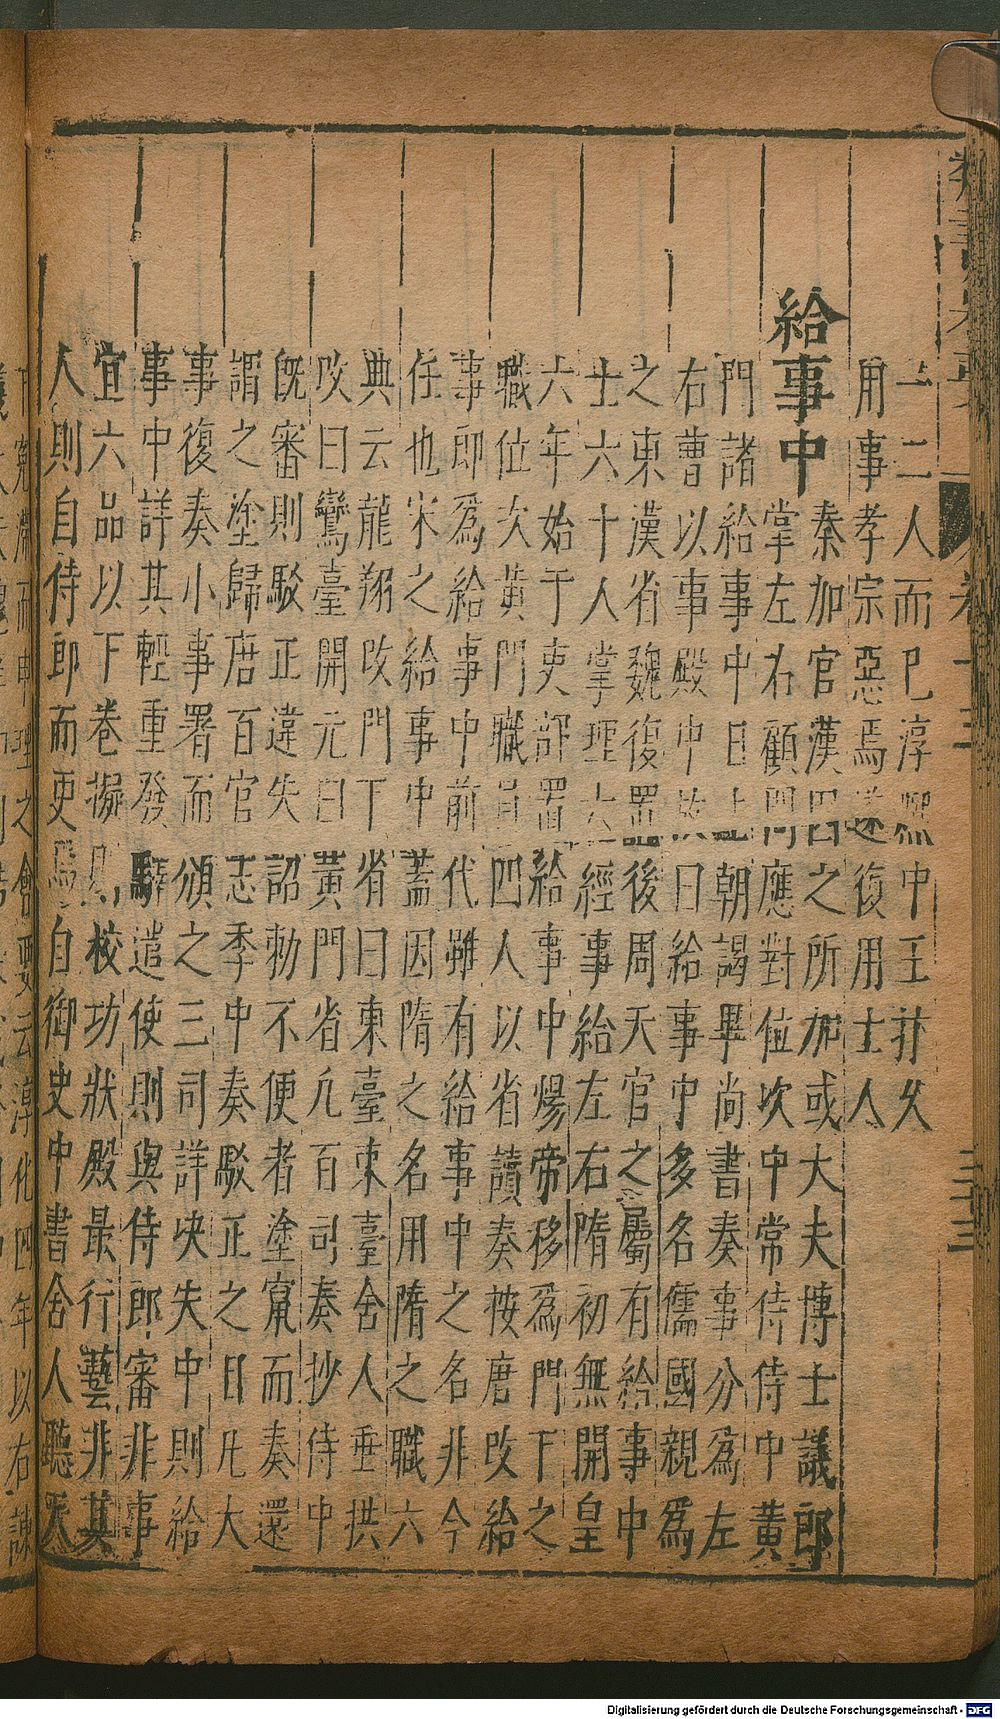 一二人而已淳熙中王抃久
用事孝宗惡焉遂復用士人
給事中
秦加官漢因之所加或大夫博士議郎
掌左右顧問應對位次中常侍侍中黃
門諸給事中日上朝謁畢尚書奏事分為左
右曹以事殿中故曰給事中多名儒國親為
之東漢省魏復置後周天官之屬有給事中
士六十人掌理六經事給左右隋初無開皇
六年始于吏部置給事中煬帝移為門下之
職位次黃門職員四人以省讀奏按唐改給
事郎為給事中前代雖有給事中之名非今
任也宋之給事中蓋因隋之名用隋之職六
典云龍翔改門下省曰東臺東臺舍人垂拱
改曰鸞臺開元曰黃門省凡百司奏抄侍中
既審則駁正違失詔勅不便者塗竄而奏還
謂之塗歸唐百官志季中奏駁正之日凡大
事復奏小事署而頒之三司詳决失中則給
事中詳其輕重發驛遣使則與侍郎審非事
宜六品以下卷擬則校功狀殿最行藝非其
人則自侍郎而更自御史中書舍人聽天
而申理之會要云淳化四年以右諫
Digitalisierung gefördert durch die Deutsche Forschungsgemeinschaft - DFG